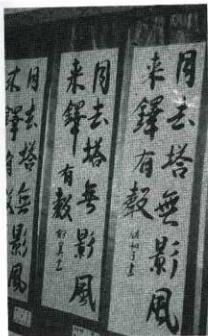 月去塔無影風
来鐸有聲
月去塔無影風
来鐸有聲
月去塔無影風
来鐸有聲